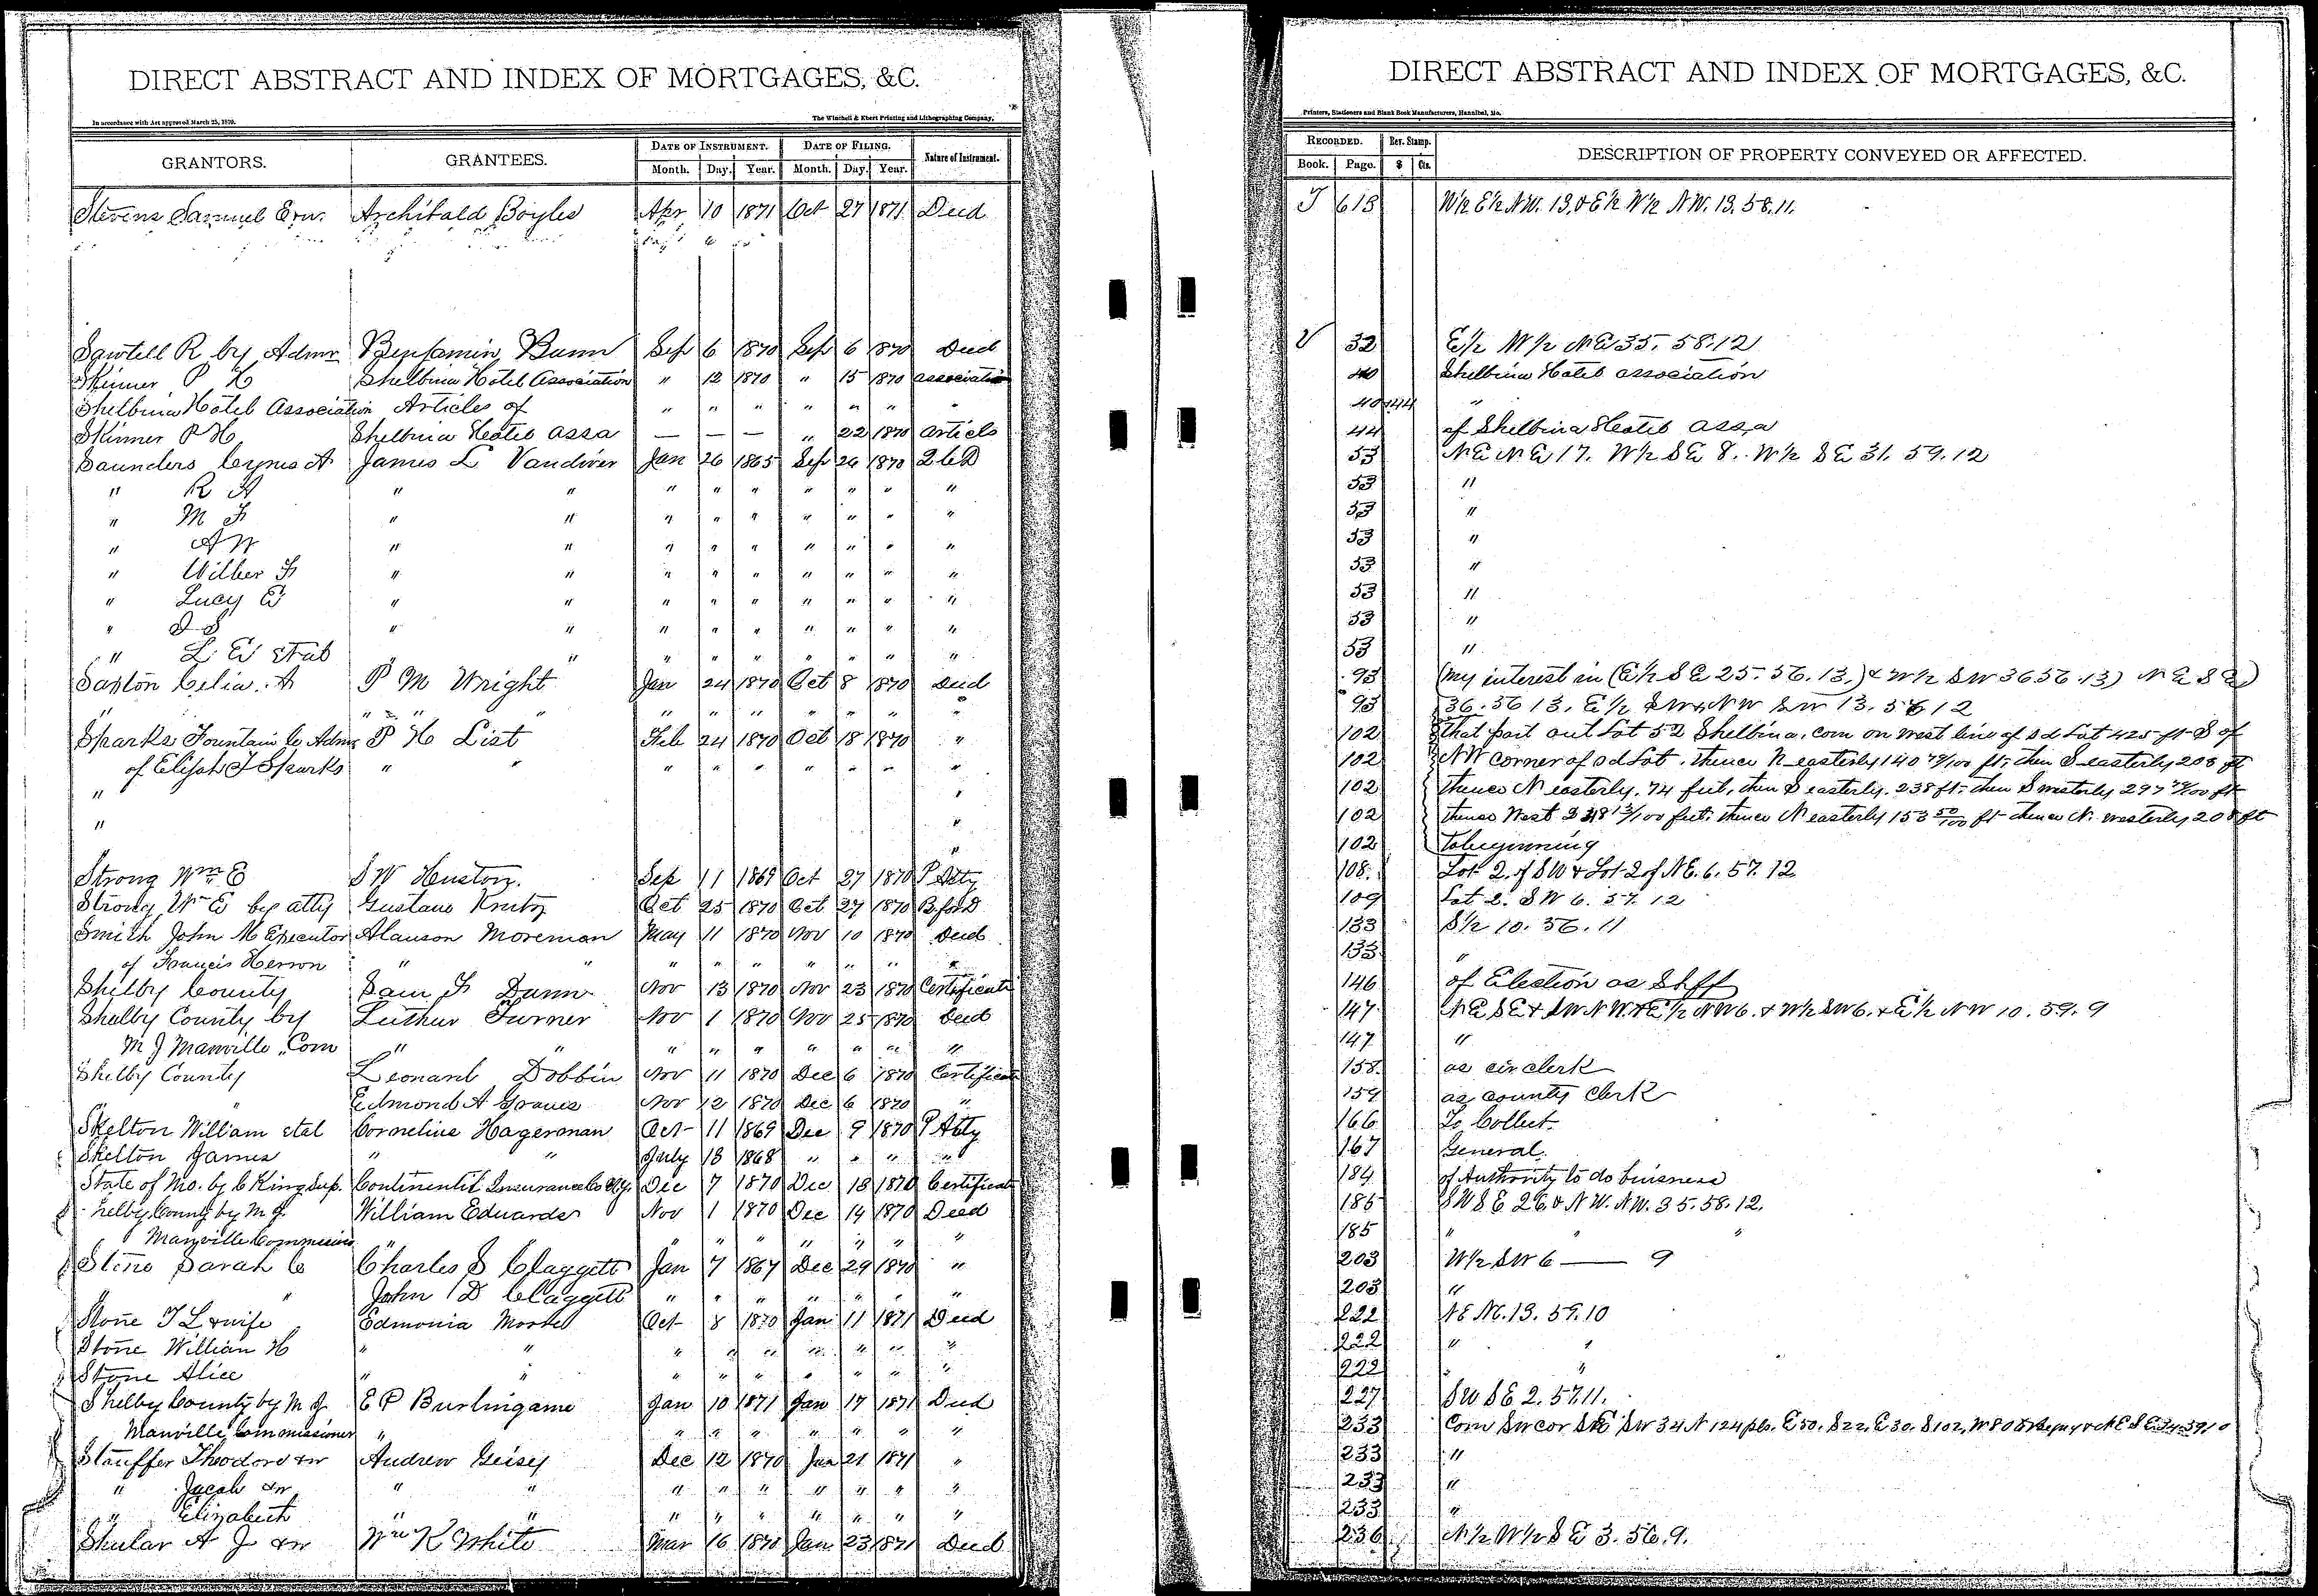 DIRECT ABSTRACT AND INDEX OF MORTGAGES, &C.
In accordance with Act approved March 25, 1870.
The Winchell & Ebert Printing and Lithographing Company,
GRANTORS. GRANTEES. DATE OF INSTRUMENT. DATE OF FILING. Nature of Instrument.
Month. Day. Year. Month. Day. Year.
Stevens Samuel Exr. Archibald Boyles Apr 10 1871 Oct 27 1871 Deed
Sawtell R by Admr Benjamin Bunn Sep 6 1870 Sep 6 1870 Deed
Skinner P H Shelbina Hotel Association " 12 1870 " 15 1870 association
Shelbina Hotel Association Articles of " " " " " " "
Skinner P H Shelbina Hotel Assa — — — " 22 1870 Articls
Saunders Cyrus A James L Vandiver Jan 26 1865 Sep 26 1870 Q C D
" R A " " " " " " " " "
" M F " " " " " " " " "
" A W " " " " " " " " "
" Wilber F " " " " " " " " "
" Lucy E " " " " " " " " "
" " " " " " " " " "
" L E et al " " " " " " " " "
Saxton Celia A P M Wright Jan 24 1870 Oct 8 1870 Deed
" " " " " " " " " "
Sparks Fountain C Admr P H List Feb 24 1870 Oct 18 1870 "
of Elijah J Sparks " " " " " " " " "
" "
" "
"
Strong Wm E S W Huston. Sep 11 1869 Oct 27 1870 P Atty
Strong Wm E by atty Gustave Oct 25 1870 Oct 27 1870 B for D
Smith John M Executor Alanson Moreman May 11 1870 Nov 10 1870 Deed
of Francis Herron " " " " " " " " "
Shelby County Sam F Dunn Nov 13 1870 Nov 23 1870 Certificate
Shelby County by Luther Turner Nov 1 1870 Nov 25 1870 Deed
M J Manville, Com " " " " " " " " "
Shelby County Leonard Dobbin Nov 11 1870 Dec 6 1870 Certificate
" Edmond A Graves Nov 12 1870 Dec 6 1870 "
Skelton William etal Cornelius Hagerman Oct 11 1869 Dec 9 1870 P Atty
Skelton James " " July 13 1868 " " " "
State of Mo. by C King Sup. Continentil Insurance Co N.Y. Dec 7 1870 Dec 13 1870 Certificate
Shelby County by M J. William Edwards Nov 1 1870 Dec 14 1870 Deed
Manville Commissioner " " " " " " " "
Stine Sarah C Charles S Claggett Jan 7 1867 Dec 29 1870 "
" John D Claggett " " " " " " "
Stone T L & wife Edmonia Oct 8 1870 Jan 11 1871 Deed
Stone William H " " " " " " " " "
Stone Alice " " " " " " " " "
Shelby County by M J. E P Burlingame Jan 10 1871 Jan 17 1871 Deed
Manville, Commissioner " " " " " " " "
Stauffer Theodore & w Andrew Geisey Dec 12 1870 Jan 21 1871 "
" Jacob & w " " " " " " " " "
" Elizabeth " " " " " " " " "
Shular A J & w Wm K White Mar 16 1870 Jan 23 1871 Deed
DIRECT ABSTRACT AND INDEX OF MORTGAGES, &C.
Printers, Stationers and Blank Book Manufacturers, Hannibal, Mo.
RECORDED. Rev. Stamp. DESCRIPTION OF PROPERTY CONVEYED OR AFFECTED.
Book. Page. $ Cts.
T 613 W½ E½ NW. 13, & E½ W½ NW. 13. 58. 11.
V 32 E½ W½ NE 35. 58. 12
40 Shelbina Hotel association
40 & 44 "
44 of Shelbina Hotel assa
53 NE NE 17. W½ SE 8. W½ SE 31. 59. 12
53 "
53 "
53 "
53 "
53 "
53 "
53 "
93 (my interest in (E½ SE 25. 56. 13.) & W½ SW 36 56. 13) NE SE)
93 36. 56 13. E½ SW & NW SW 13. 56 12
102 that part out Lot 52 Shelbina, com on west line of sd Lot 425 ft S of
102 NW corner of sd Lot, thence N easterly 140 70/100 ft, then S easterly 208 ft
102 thence N easterly. 74 feet, then S easterly. 238 ft. then S westerly 297 70/100 ft
102 thence West 248 13/100 feet. thence N easterly 153 50/100 ft thence N. westerly 208 ft
102 to beginning
108. Lot 2. of SW & Lot 2 of NE. 6. 57. 12.
109 Lot 2. SW 6. 57. 12
133 S½ 10. 56. 11
133 "
146 of Election as Shff
147 NE SE & SW NW. & E½ NW 6. & W½ SW 6. & E½ NW 10. 59. 9
147 "
158. as cir clerk
159 as county clerk
166 To Collect.
167 General.
184 of Authority to do buisness
185 SW SE 26. & NW. NW. 35. 58. 12.
185 " " "
203 W½ SW 6 — 9
203 "
222 NE NE. 13. 59. 10
222 " "
222 " "
227 SW SE 2. 57. 11.
233 Com SW cor SE SW 34 N 124 pls. E 50. S 22. E 30. S 102, W 80 to Beginy & NE SE 34. 59. 10
233 "
233 "
233 "
236 N½ W½ SE 3. 56. 9.